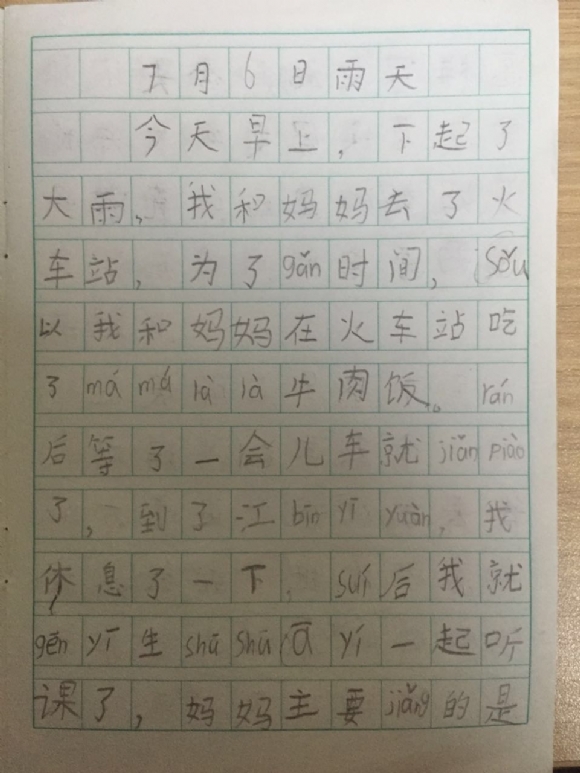 7月6日雨天
今天早上，下起了
大雨，我和妈妈去了火
车站，为了gǎn时间，Sǒu
以我和妈妈在火车站吃
了má má là là牛肉饭。rán
后等了一会儿车就jiǎn piào
了，到了江bīn yī yuàn，我
休息了一下，suí后我就
gēn yī生shū shū ā yí一起听
课了，妈妈主要jiǎng的是